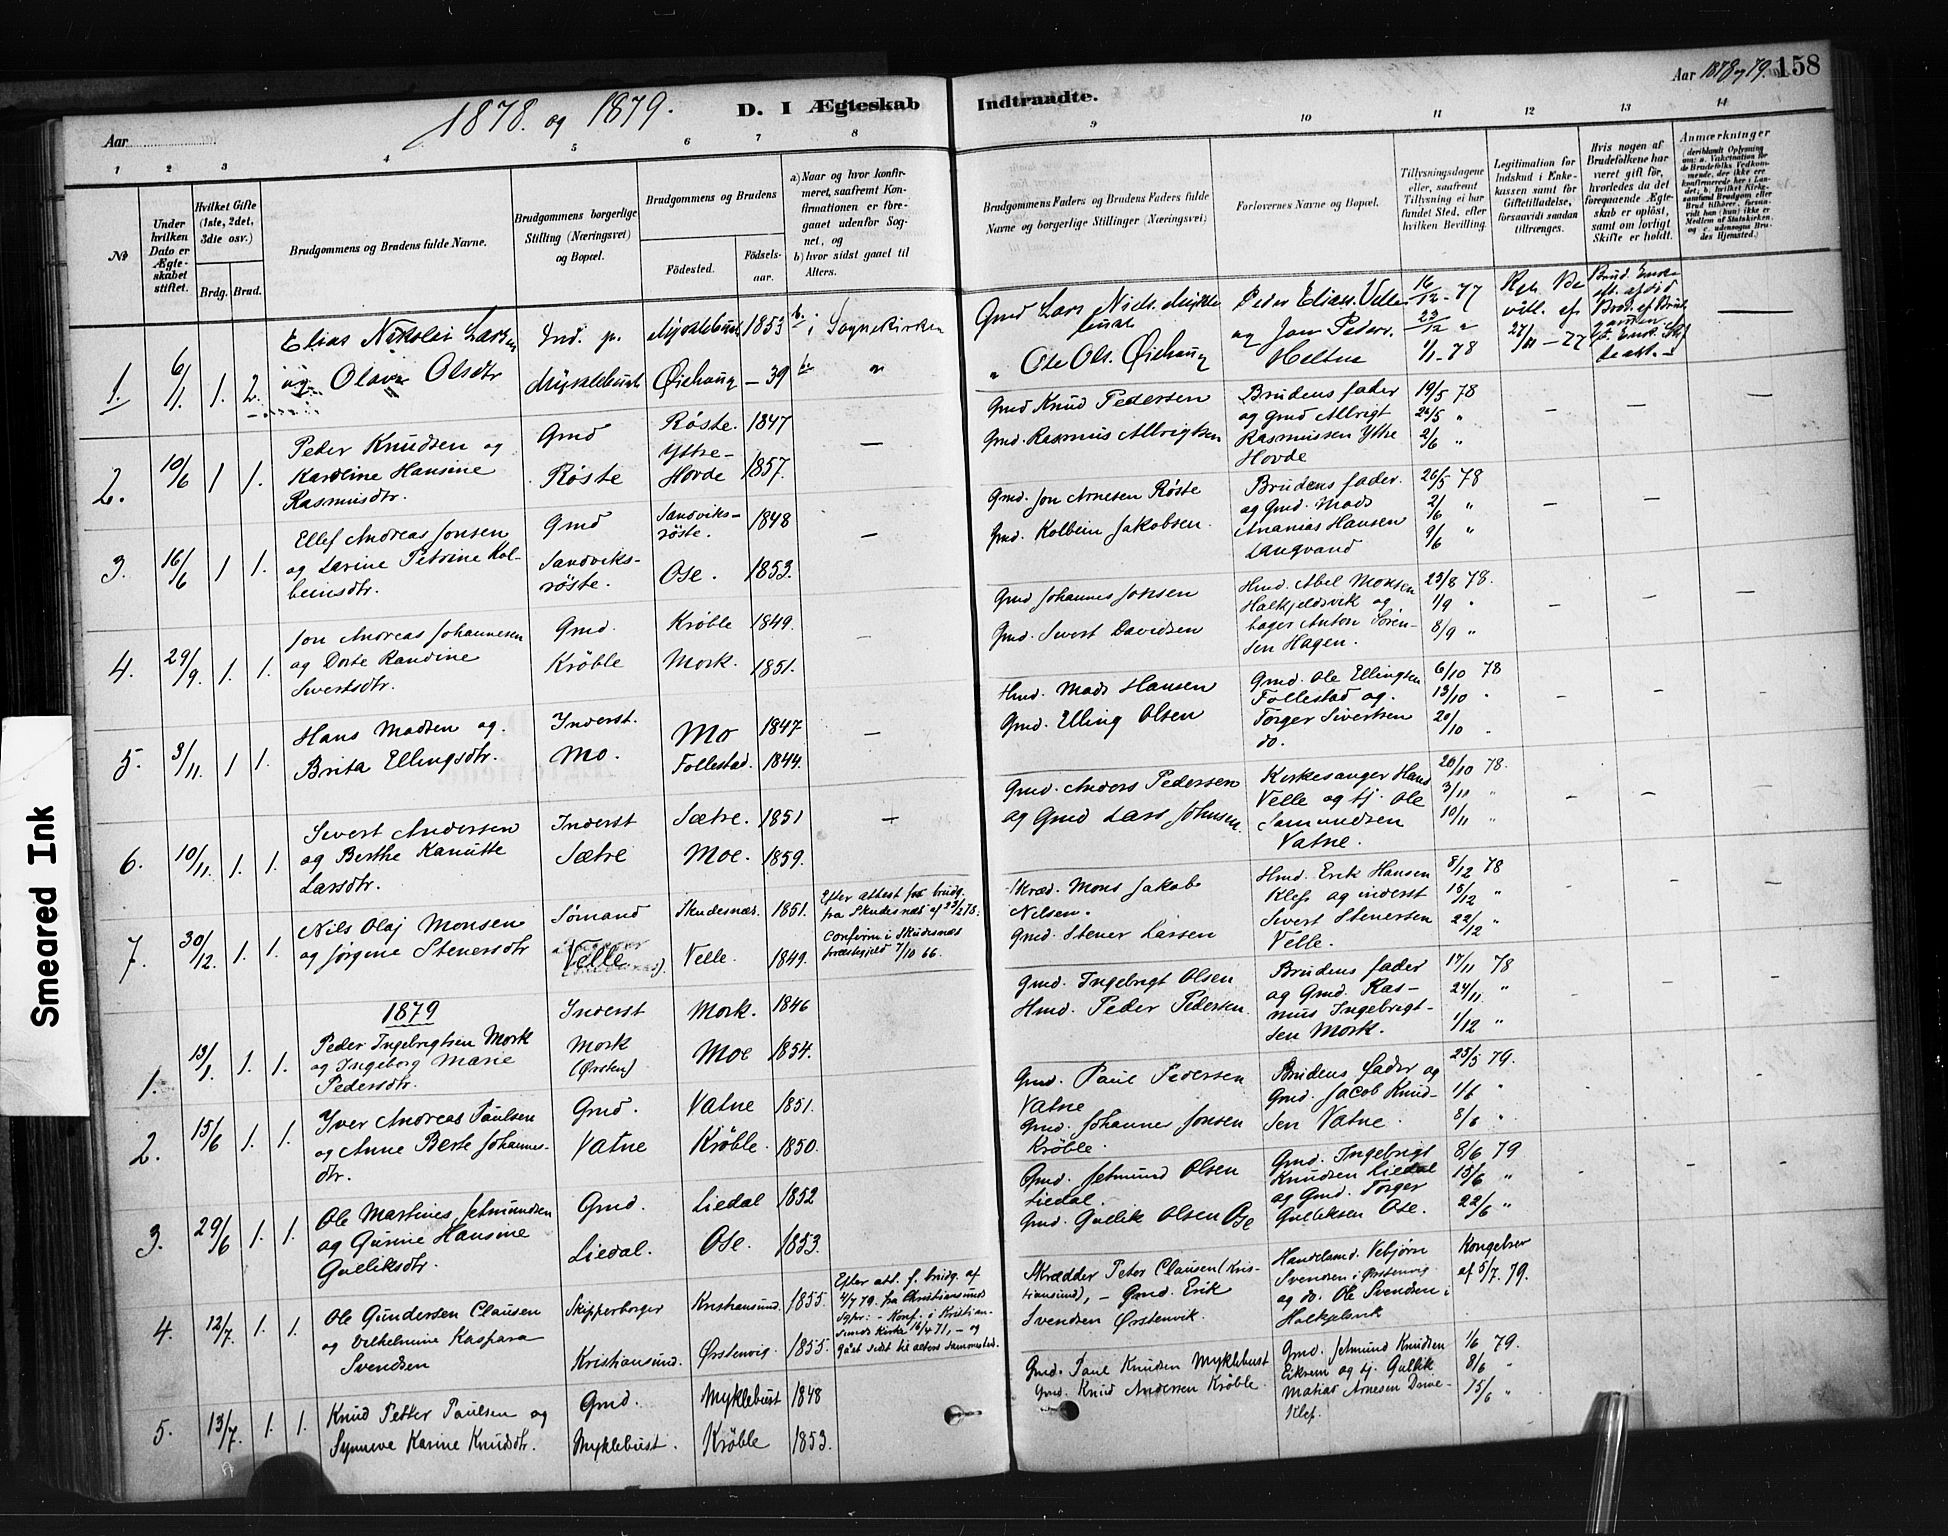 Aar 1878 og 79. 158
1878 og 1879.
D. I Ægteskab Indtraadte.
Aar
1 2 3 4 5 6 7 8 9 10 11 12 13 14
No
Under hvilken Dato er Ægteskabet stiftet.
Hvilket Gifte (1ste, 2det, 3die osv.)
Brdg. Brud.
Brudgommens og Brudens fulde Navne.
Brudgommens borgerlige Stilling (Næringsvei) og Bopæl.
Brudgommens og Brudens
Fødested. Fødselsaar.
a) Naar og hvor konfirmeret, saafremt Konfirmationen er foregaaet udenfor Sognet, og
b) hvor sidst gaaet til Alters.
Brudgommens Faders og Brudens Faders fulde Navne og borgerlige Stillinger (Næringsvei)
Forlovernes Navne og Bopæl.
Tillysningsdagene eller, saafremt Tillysning ei har fundet Sted, efter hvilken Bevilling.
Legitimation for Indskud i Enkekassen samt for Giftetilladelse, forsaavidt saadan tiltrænges.
Hvis nogen af Brudefolkene har været gift før, hvorledes da det foregaaende Ægteskab er opløst, samt om lovligt Skifte er holdt.
Anmærkninger
1. 6/1. 1. 2.
Elias Nikolei Larsen
og Olava Olsdtr
Ind. p.
Myklebust
Myklebust 1853
Øiehaug – 39
b. i Sognekirken
b. "
Gmd Lars Niels. Myklebust
" Ole Ols. Øiehaug
Peder Elias. Velle
og Jon Peders.
Heltne
16/12 - 77
23/12 "
1/1 - 78
2. 10/6 1 1.
Peder Knudsen og
Karoline Hansine
Rasmusdtr.
Gmd
Røste
Røste. 1847
Yttre-
Hovde 1857.
–
Gmd Knud Pedersen
Gmd. Rasmus Albrigtsen
Brudens fader
og Gmd Albrigt
Rasmussen Ytre
Hovde
19/5 78
26/5 "
2/6 "
3. 16/6 1 1.
Ellef Andreas Jonsen
og Larine Petrine Kol-
beinsdtr.
Gmd
Sandviks-
røste.
Sandviks-
røste. 1848
Ose. 1853.
–
Gmd. Jon Arnesen Røste
Gmd. Kolbein Jakobsen.
Brudens fader.
og Gmd. Mads
Ananias Hansen
Langvand
26/5 78
2/6 "
9/6 "
4. 29/9. 1. 1.
Jon Andreas Johannesen
og Dorte Randine
Sivertsdtr.
Gmd.
Krøble
Krøble 1849.
Mork. 1851.
–
Gmd Johannes Jonsen
Gmd. Sivert Davidsen
Hmd. Abel Monsen
Halkjeldsvik og
bager Anton Søren-
sen Hagen.
23/8 78.
1/9 "
8/9 "
5. 3/11. 1 1.
Hans Madsen og
Brita Ellingsdtr.
Inderst.
Mo.
Mo 1847
Follestad. 1844.
–
Hmd. Mads Hansen
Gmd. Elling Olsen
Gmd. Ole Ellingsen
Follestad og
Torger Sivertsen
do.
6/10 78
13/10 "
20/10 "
6. 10/11. 1. 1.
Sivert Andersen
og Berthe Kanutte
Larsdtr.
Inderst
Sætre
Sætre. 1851
Moe. 1859.
–
Gmd. Anders Pedersen
og Gmd Lars Johnsen.
Kirkesanger Hans
Velle og tj. Ole
Samundsen
Vatne.
20/10 78.
3/11 "
10/11 "
7. 30/12. 1. 1.
Nils Olaj Monsen
og Jørgine Stenersdtr
Sømand
Velle
Skudesnæs. 1851.
Velle. 1849.
Efter attest for brudg.
fra Skudesnæs af 23/2 78.
Confirm. i Skudesnæs
præstegjeld 7/10 66.
Skræd. Mons Jakob
Nilsen.
Gmd. Stener Larsen
Hmd. Erik Hansen
Klefs og inderst
Sivert Stenersen
Velle.
8/12 78
15/12 "
22/12 "
1879
1. 13/1. 1. 1.
Peder Ingebrigtsen Mork
og Ingeborg Marie
Pedersdtr.
Inderst
Mork
(Ørsten)
Mork. 1846
Moe 1854.
Gmd. Ingebrigt Olsen
Hmd. Peder Pedersen.
Brudens fader
og Gmd. Ras-
mus Ingebrigt-
sen Mork.
17/11 78
24/11 "
1/12 "
2. 15/6 1. 1.
Iver Andreas Paulsen
og Anne Berte Johannes-
dtr.
Gmd.
Vatne
Vatne 1851.
Krøble. 1850.
Gmd. Paul Pedersen
Vatne
Gmd. Johannes Jonsen
Krøble.
Brudens fader og
Gmd. Jacob Knud-
sen Vatne.
25/5 79.
1/6 "
8/6 "
3. 29/6 1. 1.
Ole Martines Jetmundsen
og Gurine Hansine
Gulliksdtr.
Gmd.
Liedal.
Liedal 1852
Ose. 1853.
Gmd. Jetmund Olsen
Liedal.
Gmd. Gullik Olsen Ose
Gmd. Ingebrigt
Knudsen Liedal
og Gmd. Torger
Gulliksen Ose.
8/6 79
15/6 "
22/6 "
4. 12/7. 1. 1.
Ole Gundersen Clausen
og Vilhelmine Kaspara
Svendsen
Skipperborger
Kristiansund.
Kristiansund. 1855.
Ørstenvig. 1855.
Efter att. f. brudg. af
4/7 79. fra Christiansund
Sgpr: – Konf. i Kristian-
sunds Kirke 16/4 71, – og
gået sidst til alters sammested.
Skrædder Peter Clausen (Kris-
tiansund), – Gmd. Erik
Svendsen Ørstenvik.
Handelsmd. Vebjørn
Svendsen i Ørstenvig
og do. Ole Svendsen i
Halkjelsvik
Kongebrev
af 5/7. 79.
5. 13/7. 1. 1.
Knud Petter Paulsen og
Synneve Karine Knudsdtr.
Gmd.
Myklebust.
Myklebust 1848
Krøble 1853.
Gmd. Paul Knudsen Myklebust
Gmd. Knud Andersen Krøble.
Gmd. Jetmund Knudsen
Eikrem og tj. Gullik
Matias Arnesen Drive-
Klef.
1/6 79.
8/6 "
15/6 "
Smeared Ink